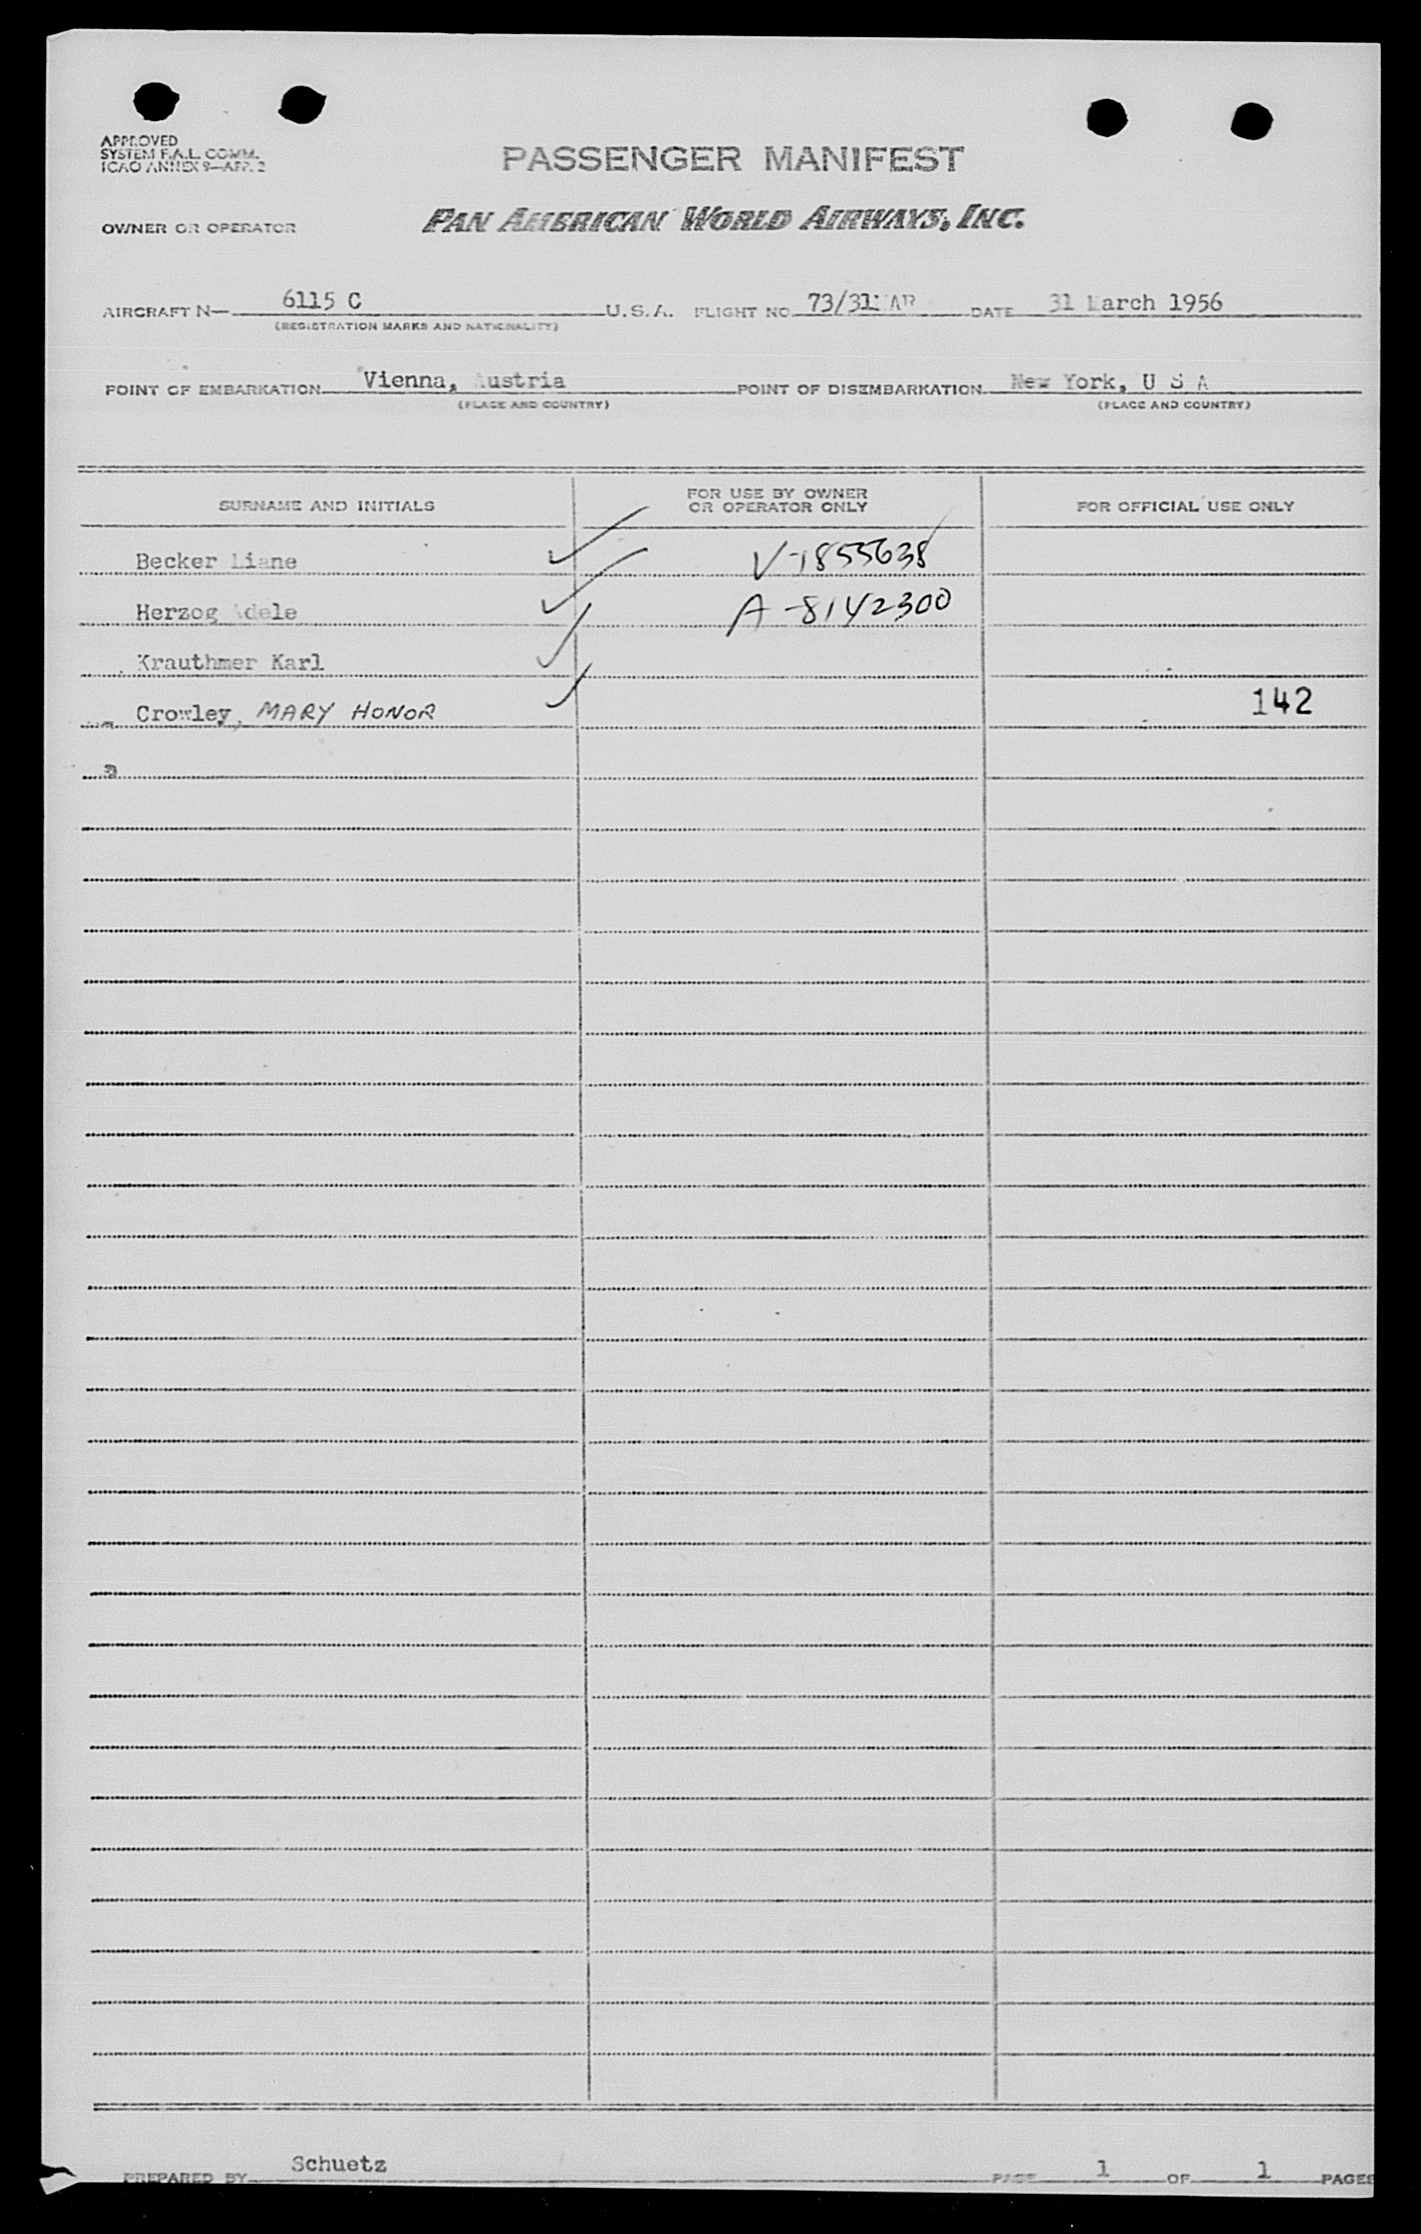 APPROVED
SYSTEM F.A.L. COMM.
ICAO ANNEX 9—APP. 2
PASSENGER MANIFEST
OWNER OR OPERATOR PAN AMERICAN WORLD AIRWAYS, INC.
AIRCRAFT N— 6115 C U.S.A. FLIGHT NO. 73/31MAR DATE 31 March 1956
(REGISTRATION MARKS AND NATIONALITY)
POINT OF EMBARKATION Vienna, Austria POINT OF DISEMBARKATION New York, U S A
(PLACE AND COUNTRY) (PLACE AND COUNTRY)
SURNAME AND INITIALS FOR USE BY OWNER OR OPERATOR ONLY FOR OFFICIAL USE ONLY
Becker Liane ✓ V-1855638
Herzog Adele ✓ A-8142300
Krauthmer Karl ✓
Crowley, MARY HONOR ✓ 142
PREPARED BY Schuetz PAGE 1 OF 1 PAGES